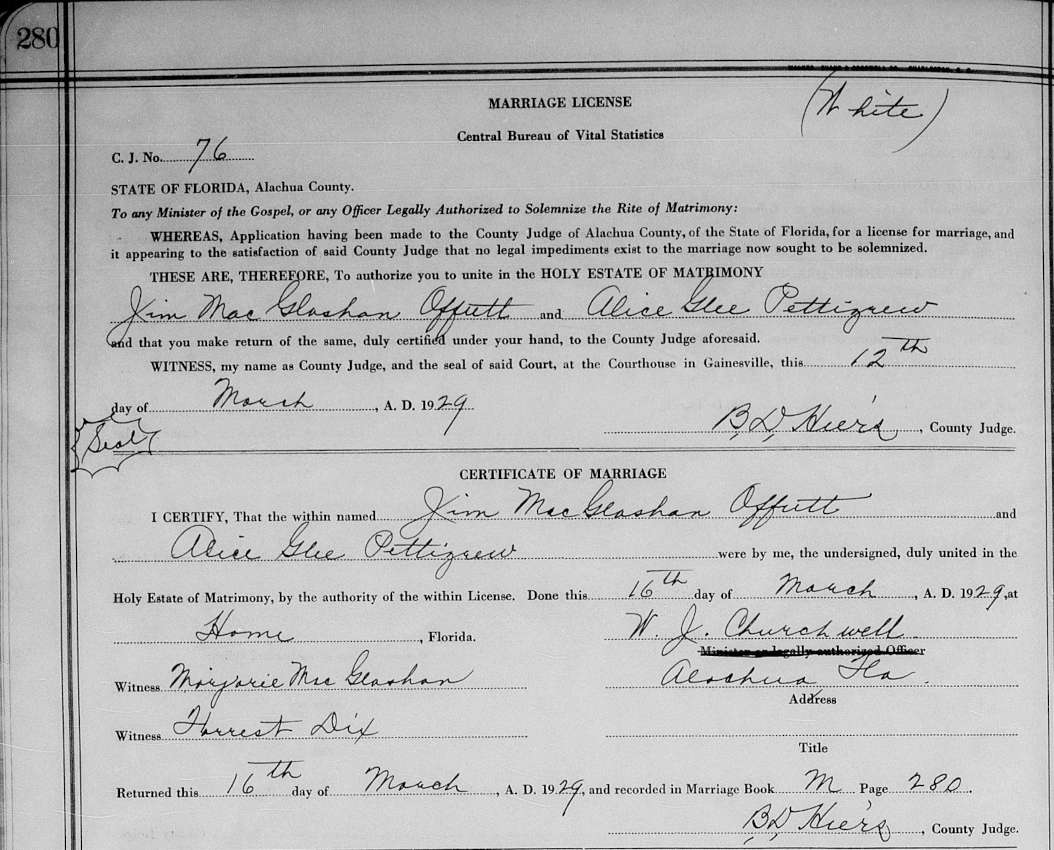 280
MARRIAGE LICENSE
(White)
Central Bureau of Vital Statistics
C. J. No. 76
STATE OF FLORIDA, Alachua County.
To any Minister of the Gospel, or any Officer Legally Authorized to Solemnize the Rite of Matrimony:
WHEREAS, Application having been made to the County Judge of Alachua County, of the State of Florida, for a license for marriage, and
it appearing to the satisfaction of said County Judge that no legal impediments exist to the marriage now sought to be solemnized.
THESE ARE, THEREFORE, To authorize you to unite in the HOLY ESTATE OF MATRIMONY
Jim Mac Glashan Offutt and Alice Glee Pettigrew
and that you make return of the same, duly certified under your hand, to the County Judge aforesaid.
WITNESS, my name as County Judge, and the seal of said Court, at the Courthouse in Gainesville, this 12th
day of March, A. D. 1929
B, D, Hiers, County Judge.
Seal
CERTIFICATE OF MARRIAGE
I CERTIFY, That the within named Jim MacGlashan Offutt and
Alice Glee Pettigrew were by me, the undersigned, duly united in the
Holy Estate of Matrimony, by the authority of the within License. Done this 16th day of March, A. D. 1929, at
Home, Florida. W. J. Churchwell
Minister or legally authorized Officer
Witness Marjorie Mac Glashan Alachua Fla.
Address
Witness Forrest Dix
Title
Returned this 16th day of March, A. D. 1929, and recorded in Marriage Book M Page 280.
B, D, Hiers, County Judge.